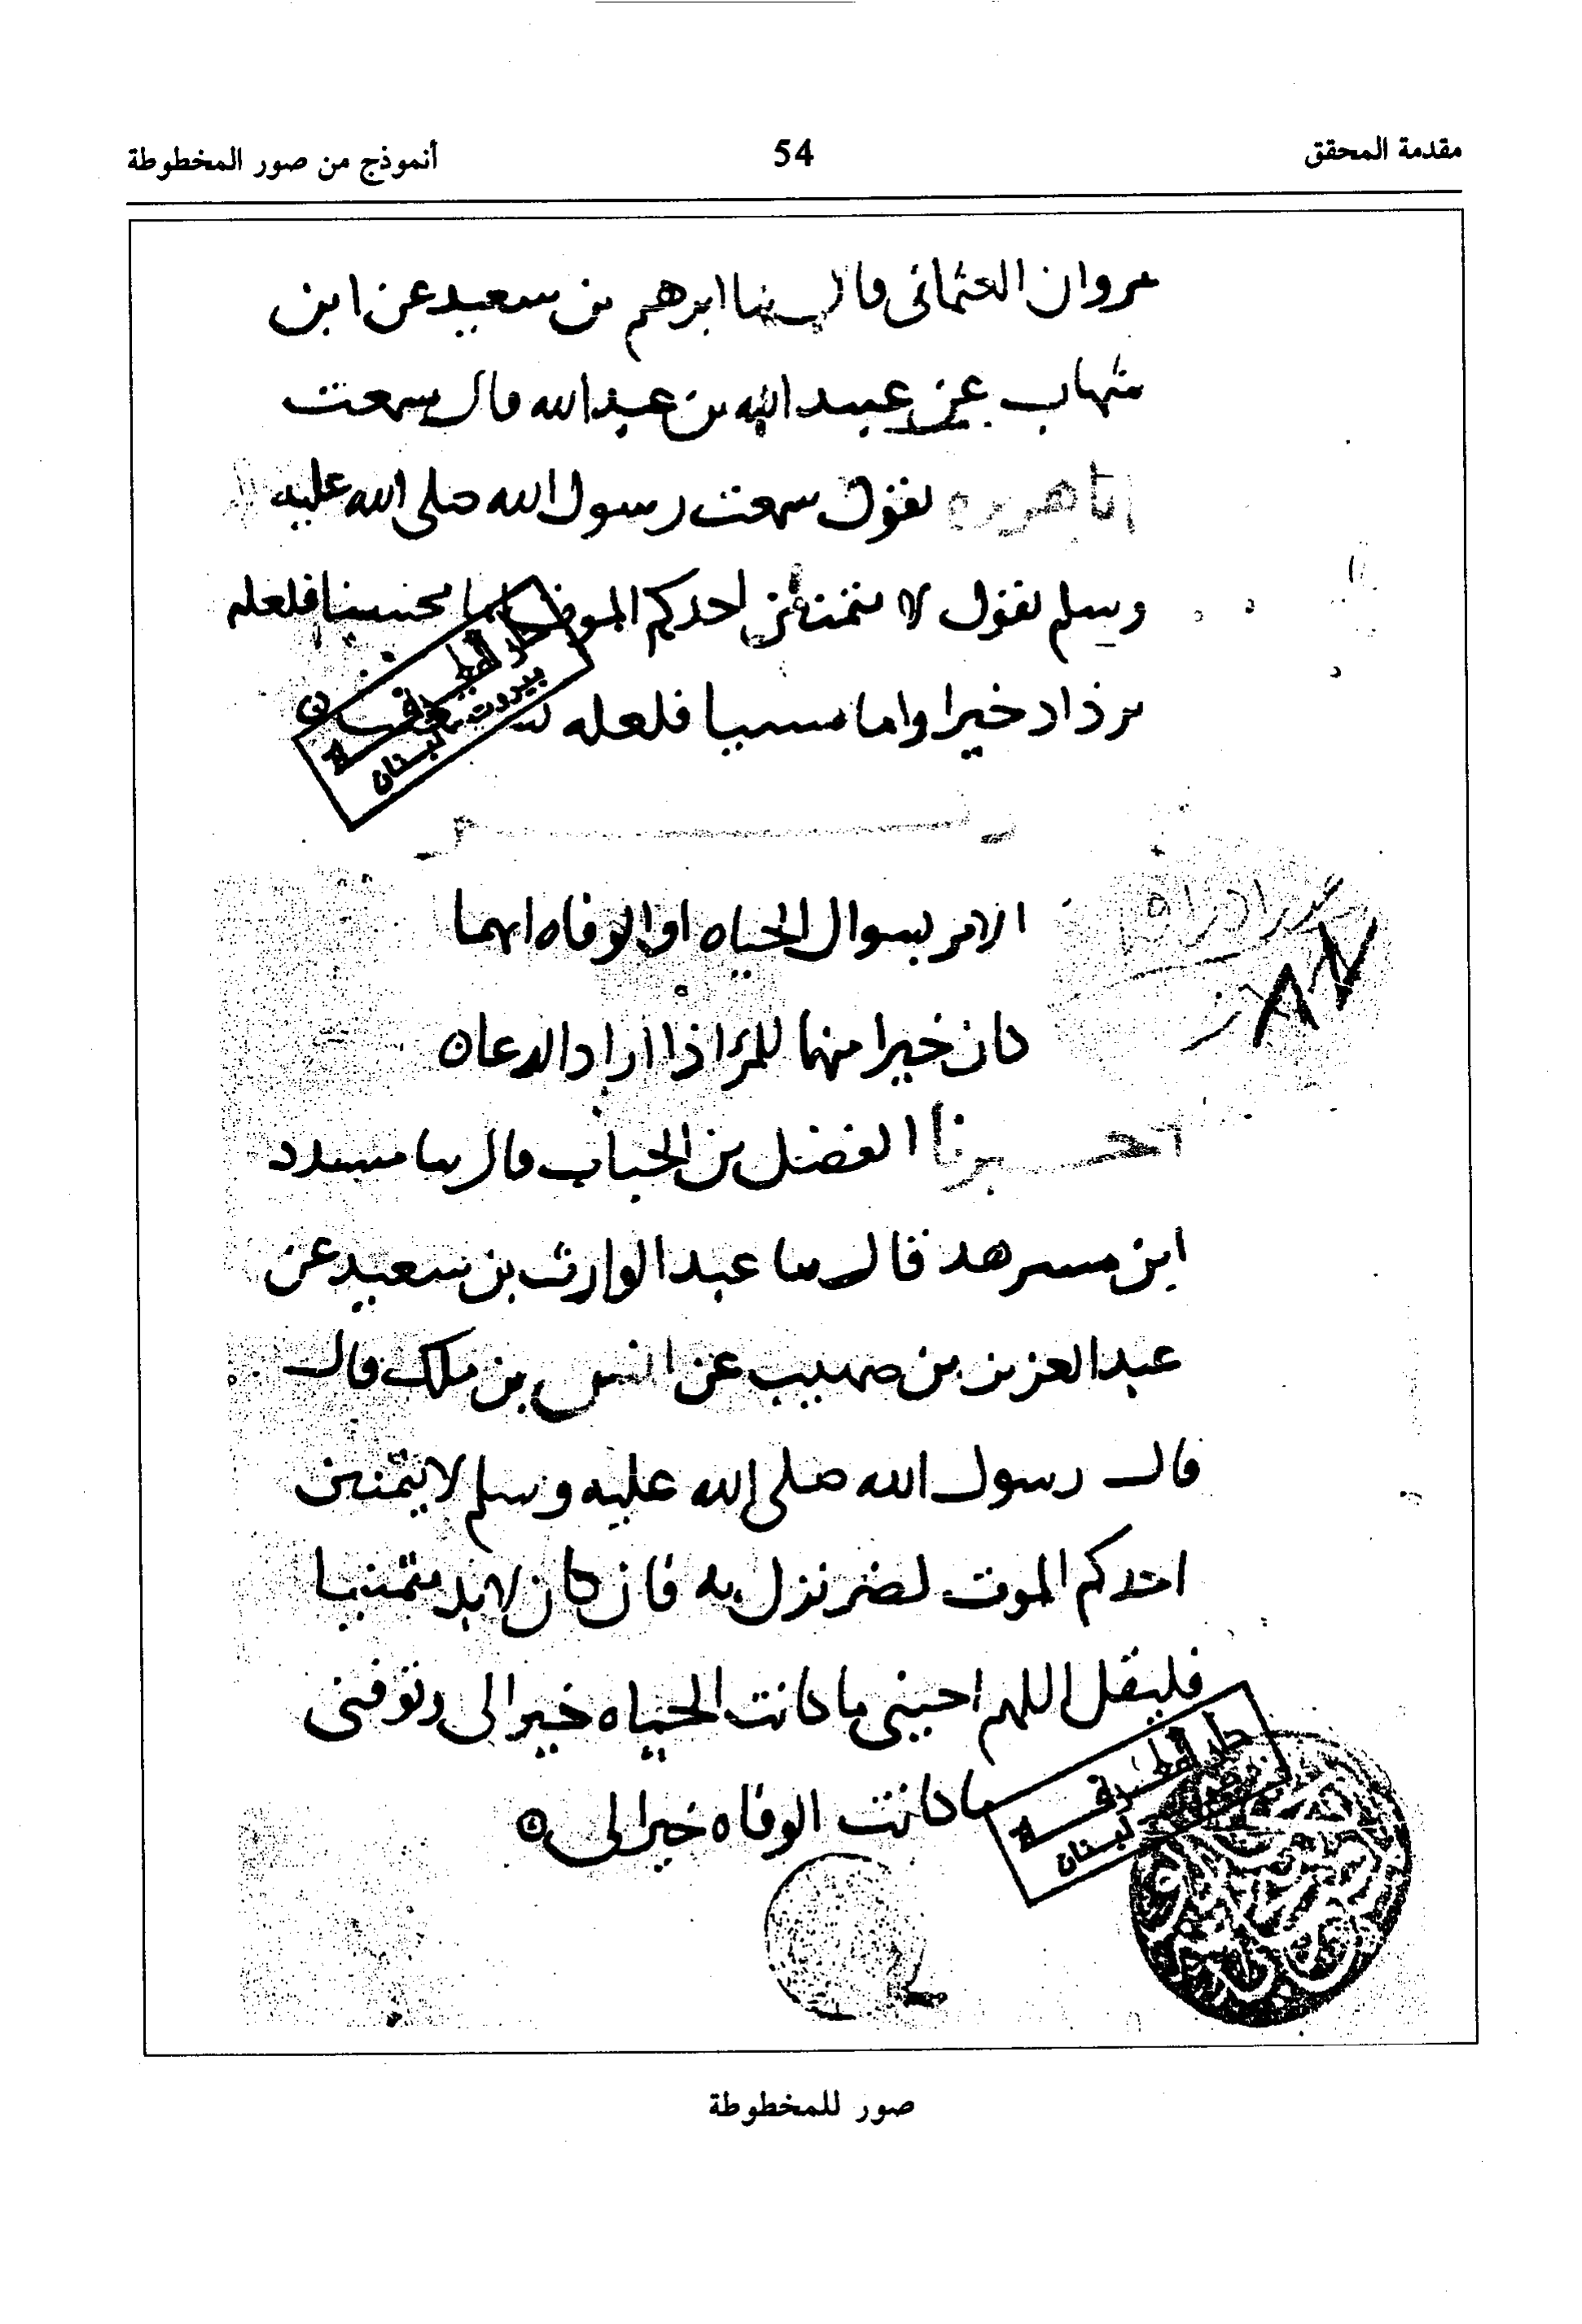 مقدمة المحقق
54
أنموذج من صور المخطوطة
مروان العثمانى قال ثنا ابرهيم بن سعيد عن ابن
شهاب عن عبيد الله بن عبد الله قال سمعت
ابا هريره يقول سمعت رسول الله صلى الله عليه
وسلم يقول لا يتمنين احدكم الموت محسنا فلعله
يزداد خيرا واما مسيا فلعله
دار المعرفة
بيروت لبنان
الامر بسوال الحياه او الوفاه ايهما
كان خيرا منهما للمرء اذا اراد الدعاء
احبرنا الفضل بن الحباب قال ثنا مسدد
ابن مسرهد قال ثنا عبد الوارث بن سعيد عن
عبد العزيز بن صهيب عن انس بن ملك قال
قال رسول الله صلى الله عليه وسلم لا يتمنين
احدكم الموت لضر نزل به فان كان لابد متمنيا
فليقل اللهم احينى ما كانت الحياه خيرا لى وتوفنى
ما كانت الوفاه خيرا لى
دار المعرفة
لبنان
صور للمخطوطة